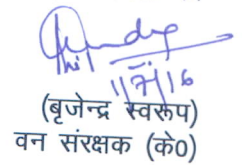 1/7/16
(बृजेन्द्र स्वरूप)
वन संरक्षक (के0)